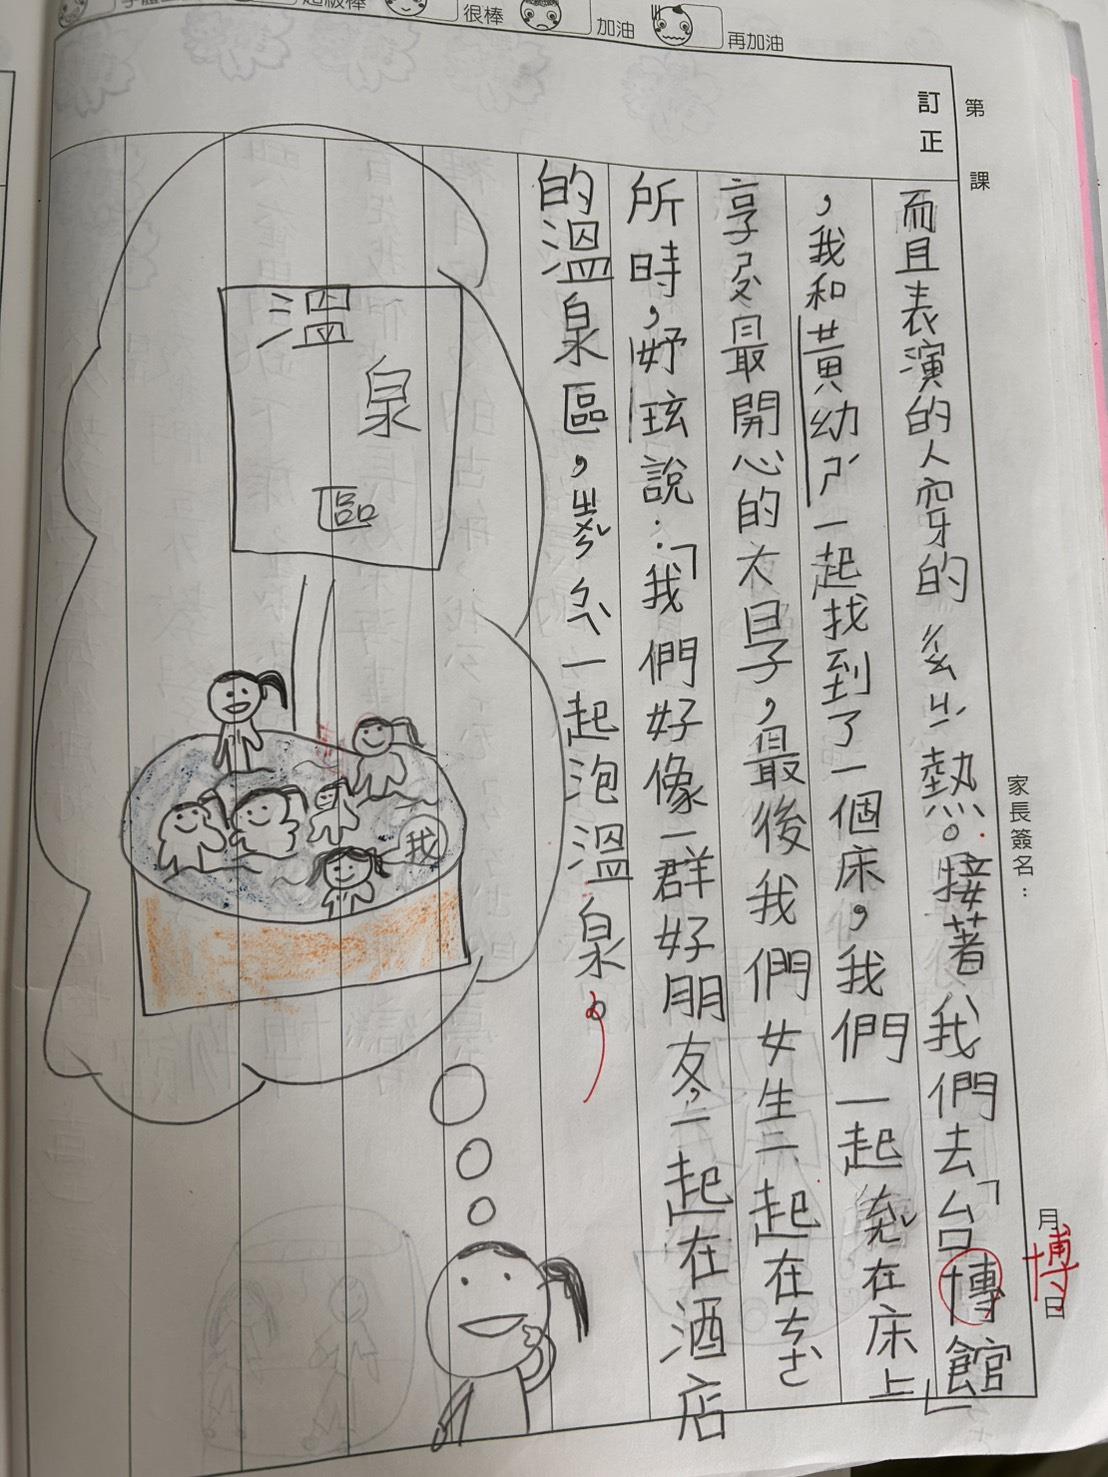 很棒
加油
再加油
訂正
第　課
家長簽名：
月　日
而且表演的人穿的ㄠ少熱。接著我們去「台博館」
，我和黃幼ㄕˊ一起找到了一個床，我們一起在床上
享受最開心的大日子，最後我們女生一起在
所時，妤玹說：「我們好像一群好朋友，一起在酒店
的溫泉區，一起泡溫泉。
博
溫泉區
我